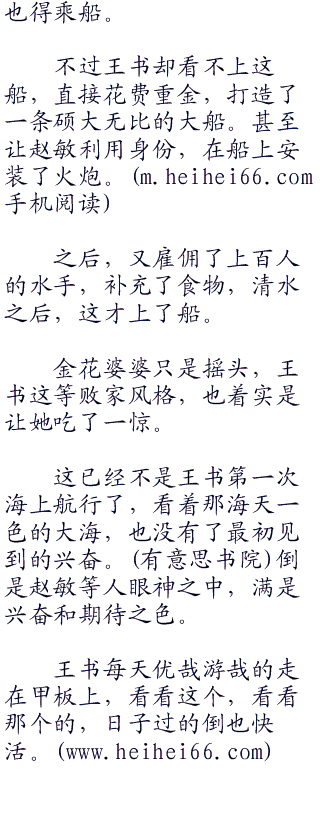 也得乘船。
不过王书却看不上这
船，直接花费重金，打造了
一条硕大无比的大船。甚至
让赵敏利用身份，在船上安
装了火炮。(m.heihei66.com
手机阅读)
之后，又雇佣了上百人
的水手，补充了食物，清水
之后，这才上了船。
金花婆婆只是摇头，王
书这等败家风格，也着实是
让她吃了一惊。
这已经不是王书第一次
海上航行了，看着那海天一
色的大海，也没有了最初见
到的兴奋。(有意思书院)倒
是赵敏等人眼神之中，满是
兴奋和期待之色。
王书每天优哉游哉的走
在甲板上，看看这个，看看
那个的，日子过的倒也快
活。(www.heihei66.com)